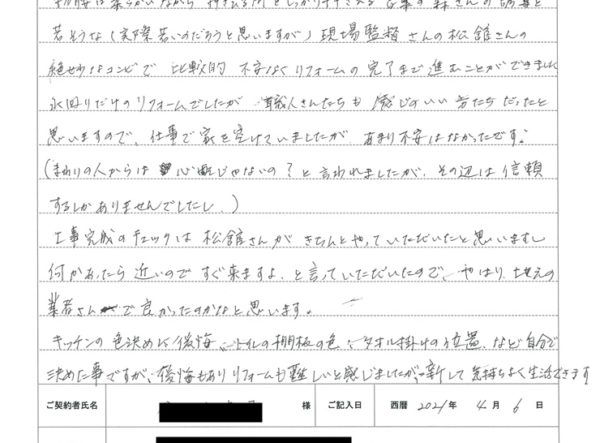 若そうな(実際若いのだろうと思いますが)現場監督さんの松舘さんの
絶妙なコンビで 比較的 不安なくリフォームの完了まで進むことができました
水回りだけのリフォームでしたが 職人さんたちも 感じのいい方たちだったと
思いますので、仕事で家を空けていましたが あまり不安はなかったです。
(まわりの人からは 心配じゃないの?と言われましたが、その辺は信頼
するしかありませんでしたし、)
工事完成のチェックは 松舘さんが きちんとやっていただいたと思いますし
何かあったら 近いので すぐ来ますよ、と言っていただいたので、やはり、地元の
業者さんで良かったのかなと思います。
キッチンの色決めに後悔、トイレの棚板の色、タオル掛けの位置、など自分で
決めた事ですが、後悔もあり リフォームも難しいと感じましたが、新しくて 気持ちよく生活できます
ご契約者氏名 様 ご記入日 西暦 2021年 4月 6日